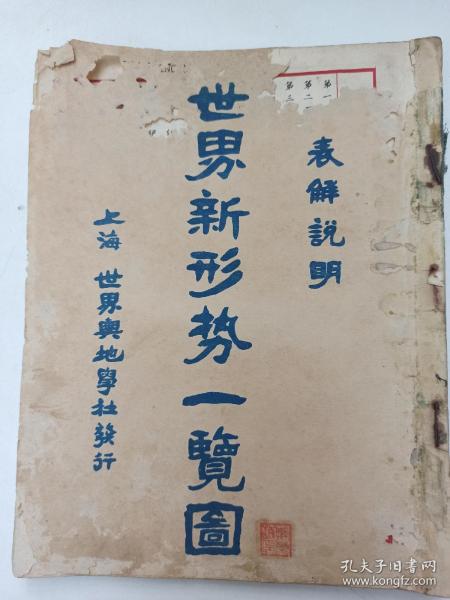 表解說明
世界新形势一覽圖
上海 世界輿地學社發行
第一
第二
第三
孔夫子旧书网
www.kongfz.com